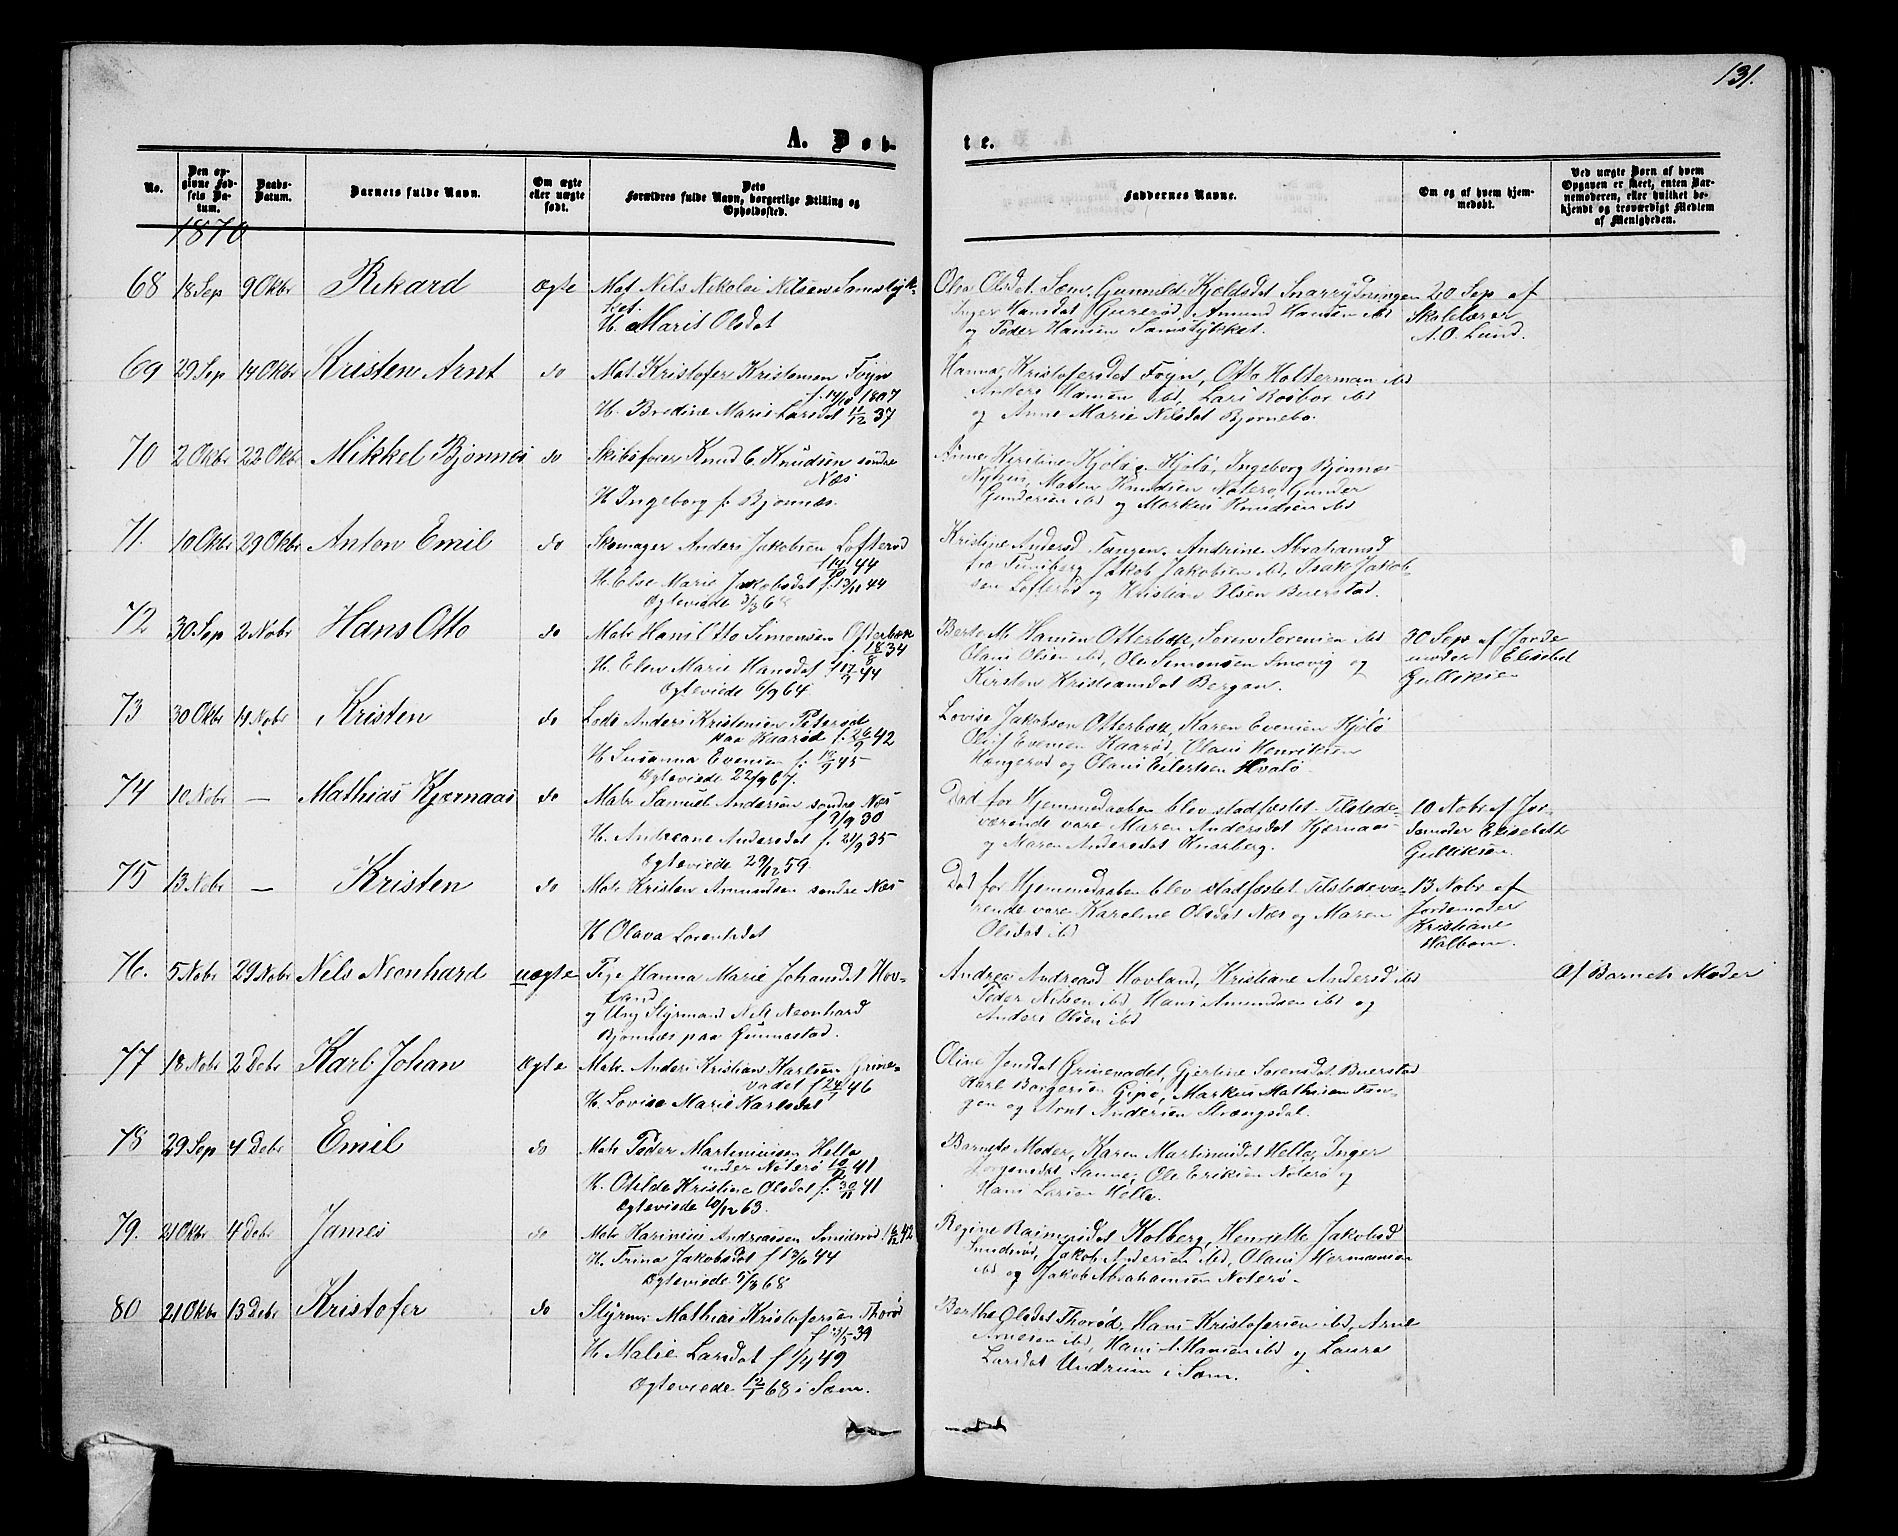 131.
A. Døb-
te.
No.
Den op-
givne Fød-
sels Da-
tum.
Daabs-
Datum.
Barnets fulde Navn.
Om ægte
eller uægte
født.
Dets
Forældres fulde Navn, borgerlige Stilling og
Opholdssted.
Faddernes Navne.
Om og af hvem hjem-
medøbt.
Ved uægte Børn af hvem
Opgaven er skeet, enten Bar-
nemoderen, eller hvilket be-
kjendt og troværdigt Medlem
af Menigheden.
1870
68 18 Sep 9 Oktbr Rikard Ægte Mat. Nils Nikolai Nilsen Samstyk-
ket.
H. Marit Olsdat
Olea Olsdat. Sæm, Gunnild Kjeldsdat Snarrydningen
Inger Hansdat Gurerød, Amund Hansen ibd
og Peder Hansen Samstykket.
20 Sep af
Skolelærer
A. O. Lund.
69 29 Sep 14 Oktbr Kristen Arnt do Mat. Kristofer Kristensen Føyn
f. 14/10 1807
H. Bredine Marie Larsdat 11/12 37
Hanna Kristofersdat Føyn, Otto Holterman ibd
Anders Hansen ibd, Lars Rosbor ibd
og Anne Marie Nilsdat Bjørnebo.
70 2 Oktbr 22 Oktbr Mikkel Bjønnes do Skibsfører Knud C. Knudsen søndre
Næs
H. Ingeborg f. Bjønnæs.
Anne Kirstine Kjølø, Ingeborg Bjønnæs
Maren Knudsen Nøterø, Gunder
Gundersen ibd og Markus Knudsen ibd
71. 10 Oktbr 29 Oktbr Anton Emil do Skomager Anders Jakobsen Lofterød
44
H. Else Marie Jakobsdat f. 13/11 44
Ægteviede 3/3 68
Kristine Andersd Tangen, Andrine Abrahamsd
fra Tunsberg Jakob Jakobsen ibd, Isak Jakob-
sen Lofterød og Kristian Olsen Buerstad.
72 30 Sep 2 Nobr Hans Otto do Matr Hans Otto Simonsen Ofterbæk
f. 18/8 34
H. Elen Marie Hansdat 44
Ægteviede 6/9 64
Berte M. Hansen Otterbæk, Søren Sørensen ibd
Olaus Olsen ibd, Ole Simonsen Smørvig og
Kirsten Kristiansdat Bergan.
30 Sep af Jorde
moder Elisabet
Gulliksen
73 30 Oktbr 14 Nobr Kristen do Lods Anders Kristensen Peterød
paa Haarød f. 26/9 42
H. Susanna Evensen f. 45
Ægteviede 22/9 67.
Lovise Jakobsen Otterbæk, Karen Evensen Kjølø
Oluf Evensen Haarød, Olaus Henriksen
Hengerød og Olaus Eilertsen Hvalø
74 10 Nobr — Mathias Kjærnaas do Matr Samuel Andersen søndre Næs
f 7/9 30
H. Andreane Andersdat f. 21/9 35
Ægteviede 29/12 59
Død før Hjemmedaaben blev stadfæstet. Tilstede-
værende vare Maren Andersdat Kjærnaas
og Maren Andersdat Knarberg.
10 Nobr af Jor-
demoder Elisabeth
Gulliksen.
75 13 Nobr — Kristen do Matr Kristen Amundsen søndre Næs
H. Olava Lorentsdat
Død før Hjemmedaaben blev stadfæstet. Tilstedevæ-
rende vare Karoline Olsdat Næs og Maren
Olsdat ibd
13 Nobr af
Jordemoder
Kristiane
Halbom.
76. 5 Nobr 29 Nobr Nils Neonhard uægte Pige Hanna Marie Johansdat Hov-
land
og Ung Styrmand Nils Neonhard
Bjønnæs paa Gunnestad.
Andrea Andreasd Hovland, Kristiane Andersd ibd
Peder Nilsen ibd, Hans Amundsen ibd og
Anders Olsen ibd
Af Barnets Moder
77 18 Nobr 2 Debr Karl Johan Ægte Matr. Anders Kristian Karlsen Grine-
vadet f 46
H. Lovise Marie Karlsdat
Oline Jensdat Grinevadet, Gjertine Sørensdat Buerstad
Karl Borgersen Gipø, Markus Mathisen Tan-
gen og Arnt Andersen Strængsdal.
78 29 Sep 4 Debr Emil do Matr Peder Martiniusen Hella
under Nøterø 10/11 41
H. Otilde Kristine Olsdat f. 30/11 41
Ægteviede 10/12 63.
Barnets Moder, Karen Martinusdat Hella, Inger
Jørgensdat Sanne, Ole Eriksen Nøterø og
Hans Larsen Hella.
79. 21 Oktbr 4 Debr James do Matr Karinius Andreassen Smidsrød 42
H. Trina Jakobsdat f 13/6 44
Ægteviede 5/3 68
Regine Rasmusdat Kolberg, Henriette Jakobsd
Smidsrød, Jakob Andersen ibd, Olaus Hermansen
ibd og Jakob Abrahamsen Nøterø.
80 21 Oktbr 13 Debr Kristofer do Styrm. Mathias Kristofersen Thorød
39
H. Malie Larsdat f 1/7 49
Ægteviede 12/1 68 i Sæm.
Berthe Olsdat Thorød, Hans Kristofersen ibd, Arne
Arnesen ibd, Hans A. Hansen ibd og Laura
Larsdat Undrum i Sæm.